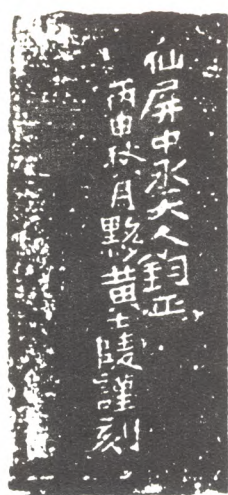 仙屏中丞大人鈞正
丙申秋月黟黃士陵謹刻